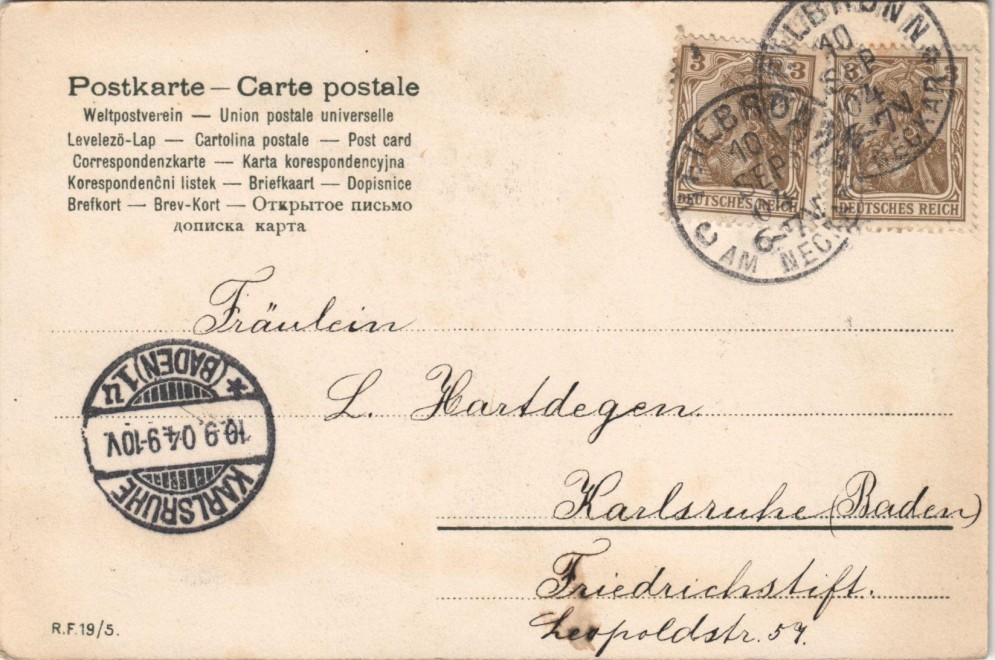 Postkarte — Carte postale
Weltpostverein — Union postale universelle
Levelező-Lap — Cartolina postale — Post card
Correspondenzkarte — Karta korespondencyjna
Korespondenčni listek — Briefkaart — Dopisnice
Brefkort — Brev-Kort — Открытое письмо
дописка карта
3 3
DEUTSCHES REICH
3
DEUTSCHES REICH
HEILBRONN
10
SEP
04
6-7V.
AM NECKAR
HEILBRONN
10
SEP
04
6-7V.
AM NECKAR
Fräulein
L. Hartdegen
Karlsruhe (Baden)
Friedrichstift.
Leopoldstr. 57.
KARLSRUHE
10.9.04.9-10V.
* (BADEN) 1.u
R.F.19/5.